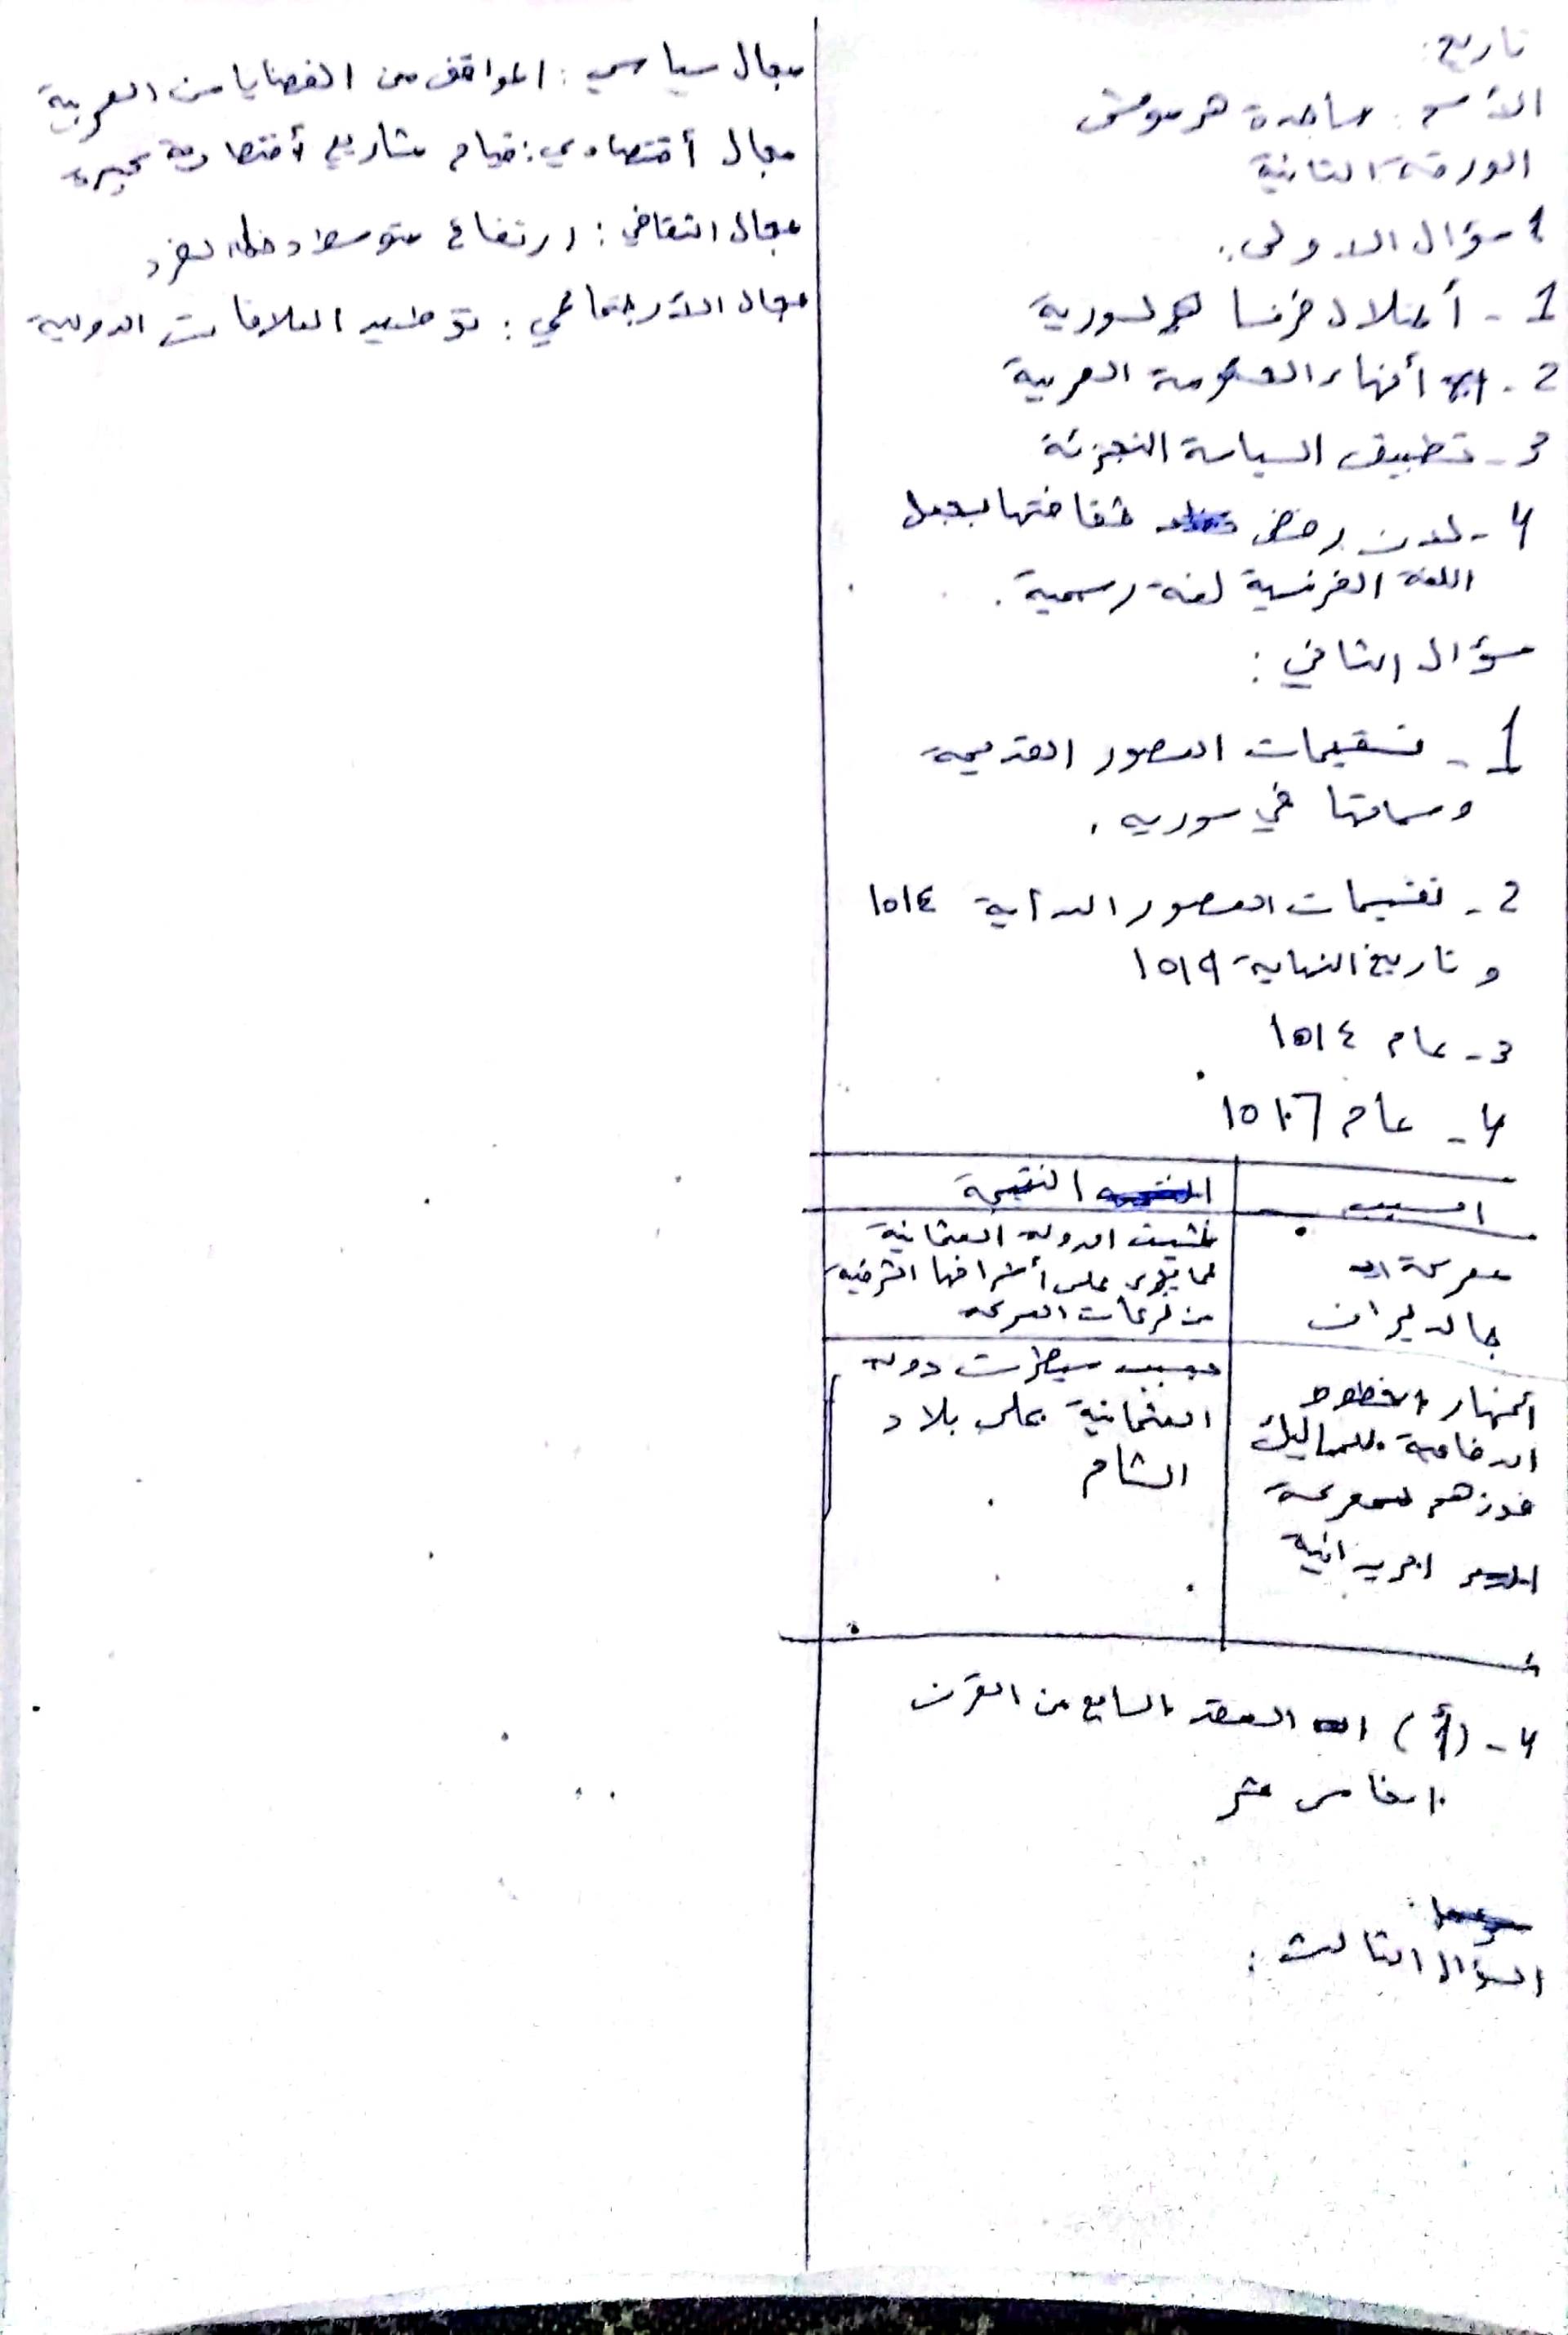 تاريخ:
الأسم: ساجدة هرموش
الورقة الثانية
سؤال الاولى:
1 - أحتلال فرنسا لسورية
2 - أنهاء الحكومة العربية
3 - تطبيق السياسة التجزئة
4 - رفض ثقافتها بجعل
اللغة الفرنسية لغة رسمية.
سؤال الثاني:
1 - تسقيمات العصور القديمة
وسماتها في سوريه.
2 - تقسيمات العصور البدأية ١٥١٤
و تاريخ النهاية ١٥١٩
3 - عام ١٥١٤
4 - عام ١٥١٦
السبب | النتيجة
معركة
جالديران | الدولة العثمانية
لما يجري على أطرافها الشرقية
من العركه
أنهيار الخطوط
الدفاعية للماليك
فوزهم لمعركة
| بسبب سيطرت دولة
العثمانية على بلاد
الشام
4 - (أ) العقد السابع من القرن
الخامس عشر
السؤال الثالث:
مجال سياسي: المواقف من القضايا من العربية
مجال أقتصادي: قيام مشاريع أقتصادية كبيره
مجال الثقافي: ارتفاع متوسط دخل الفرد
مجال الأرجتماعي: توطيد العلاقات الدولية